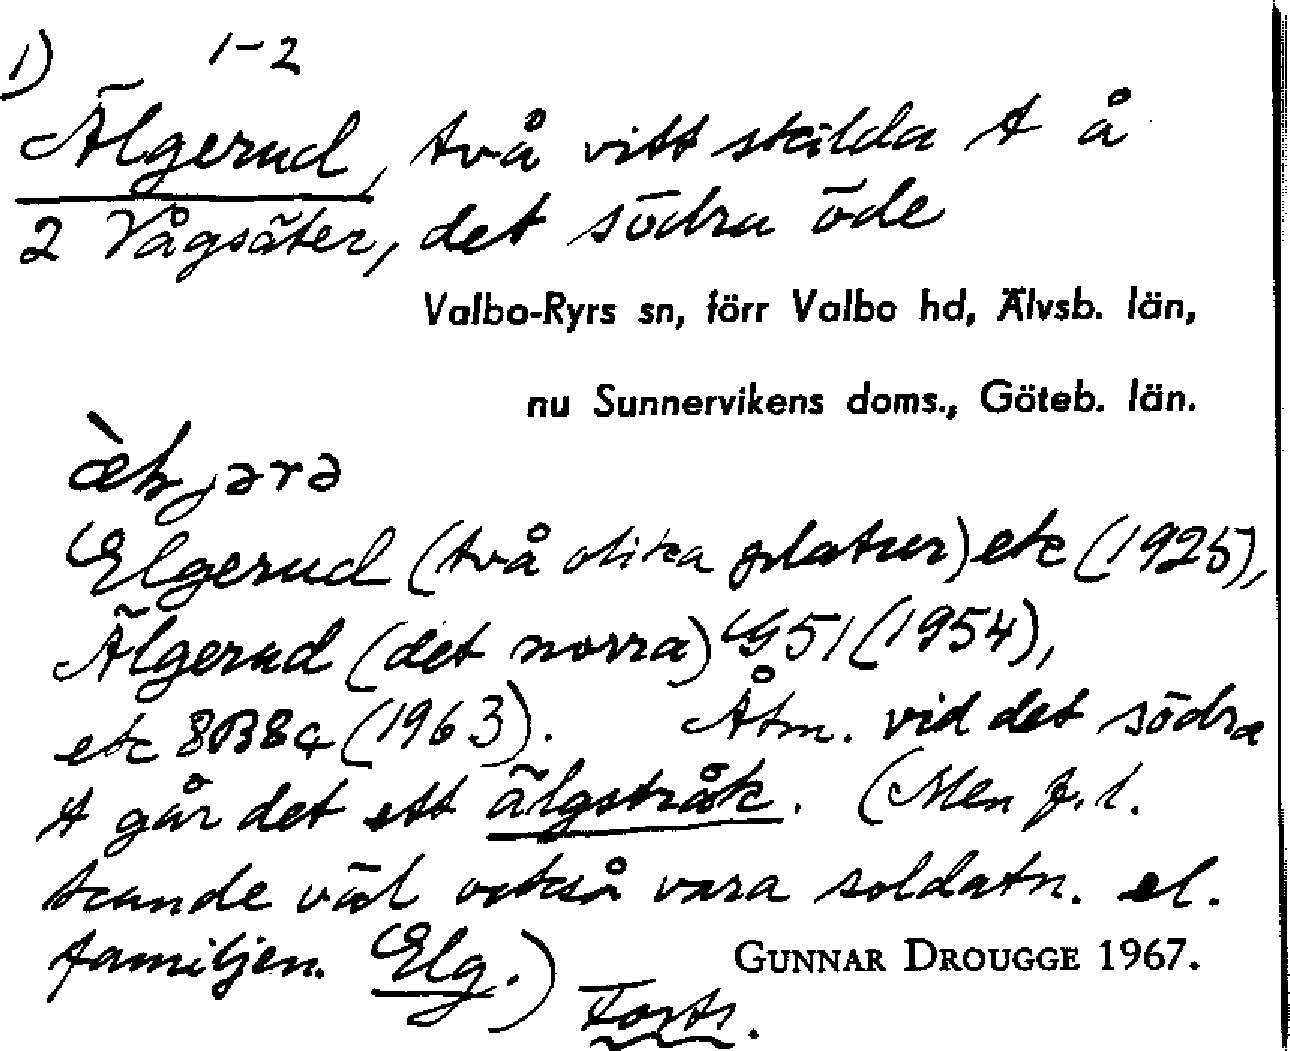 1) 1-2
Älgerud, två vitt skilda t å
2 Vågsäter, det södra öde
Valbo-Ryrs sn, förr Valbo hd, Älvsb. län,
nu Sunnervikens doms., Göteb. län.
Elgerud (två olika platser) ek (1925),
Älgerud (det norra) G51 (1954),
ek 8B8c (1963). Åtm. vid det södra
t går det ett älgstråk. (Men f.l.
kunde väl också vara soldatn. el.
familjen. Elg.) GUNNAR DROUGGE 1967.
Forts.